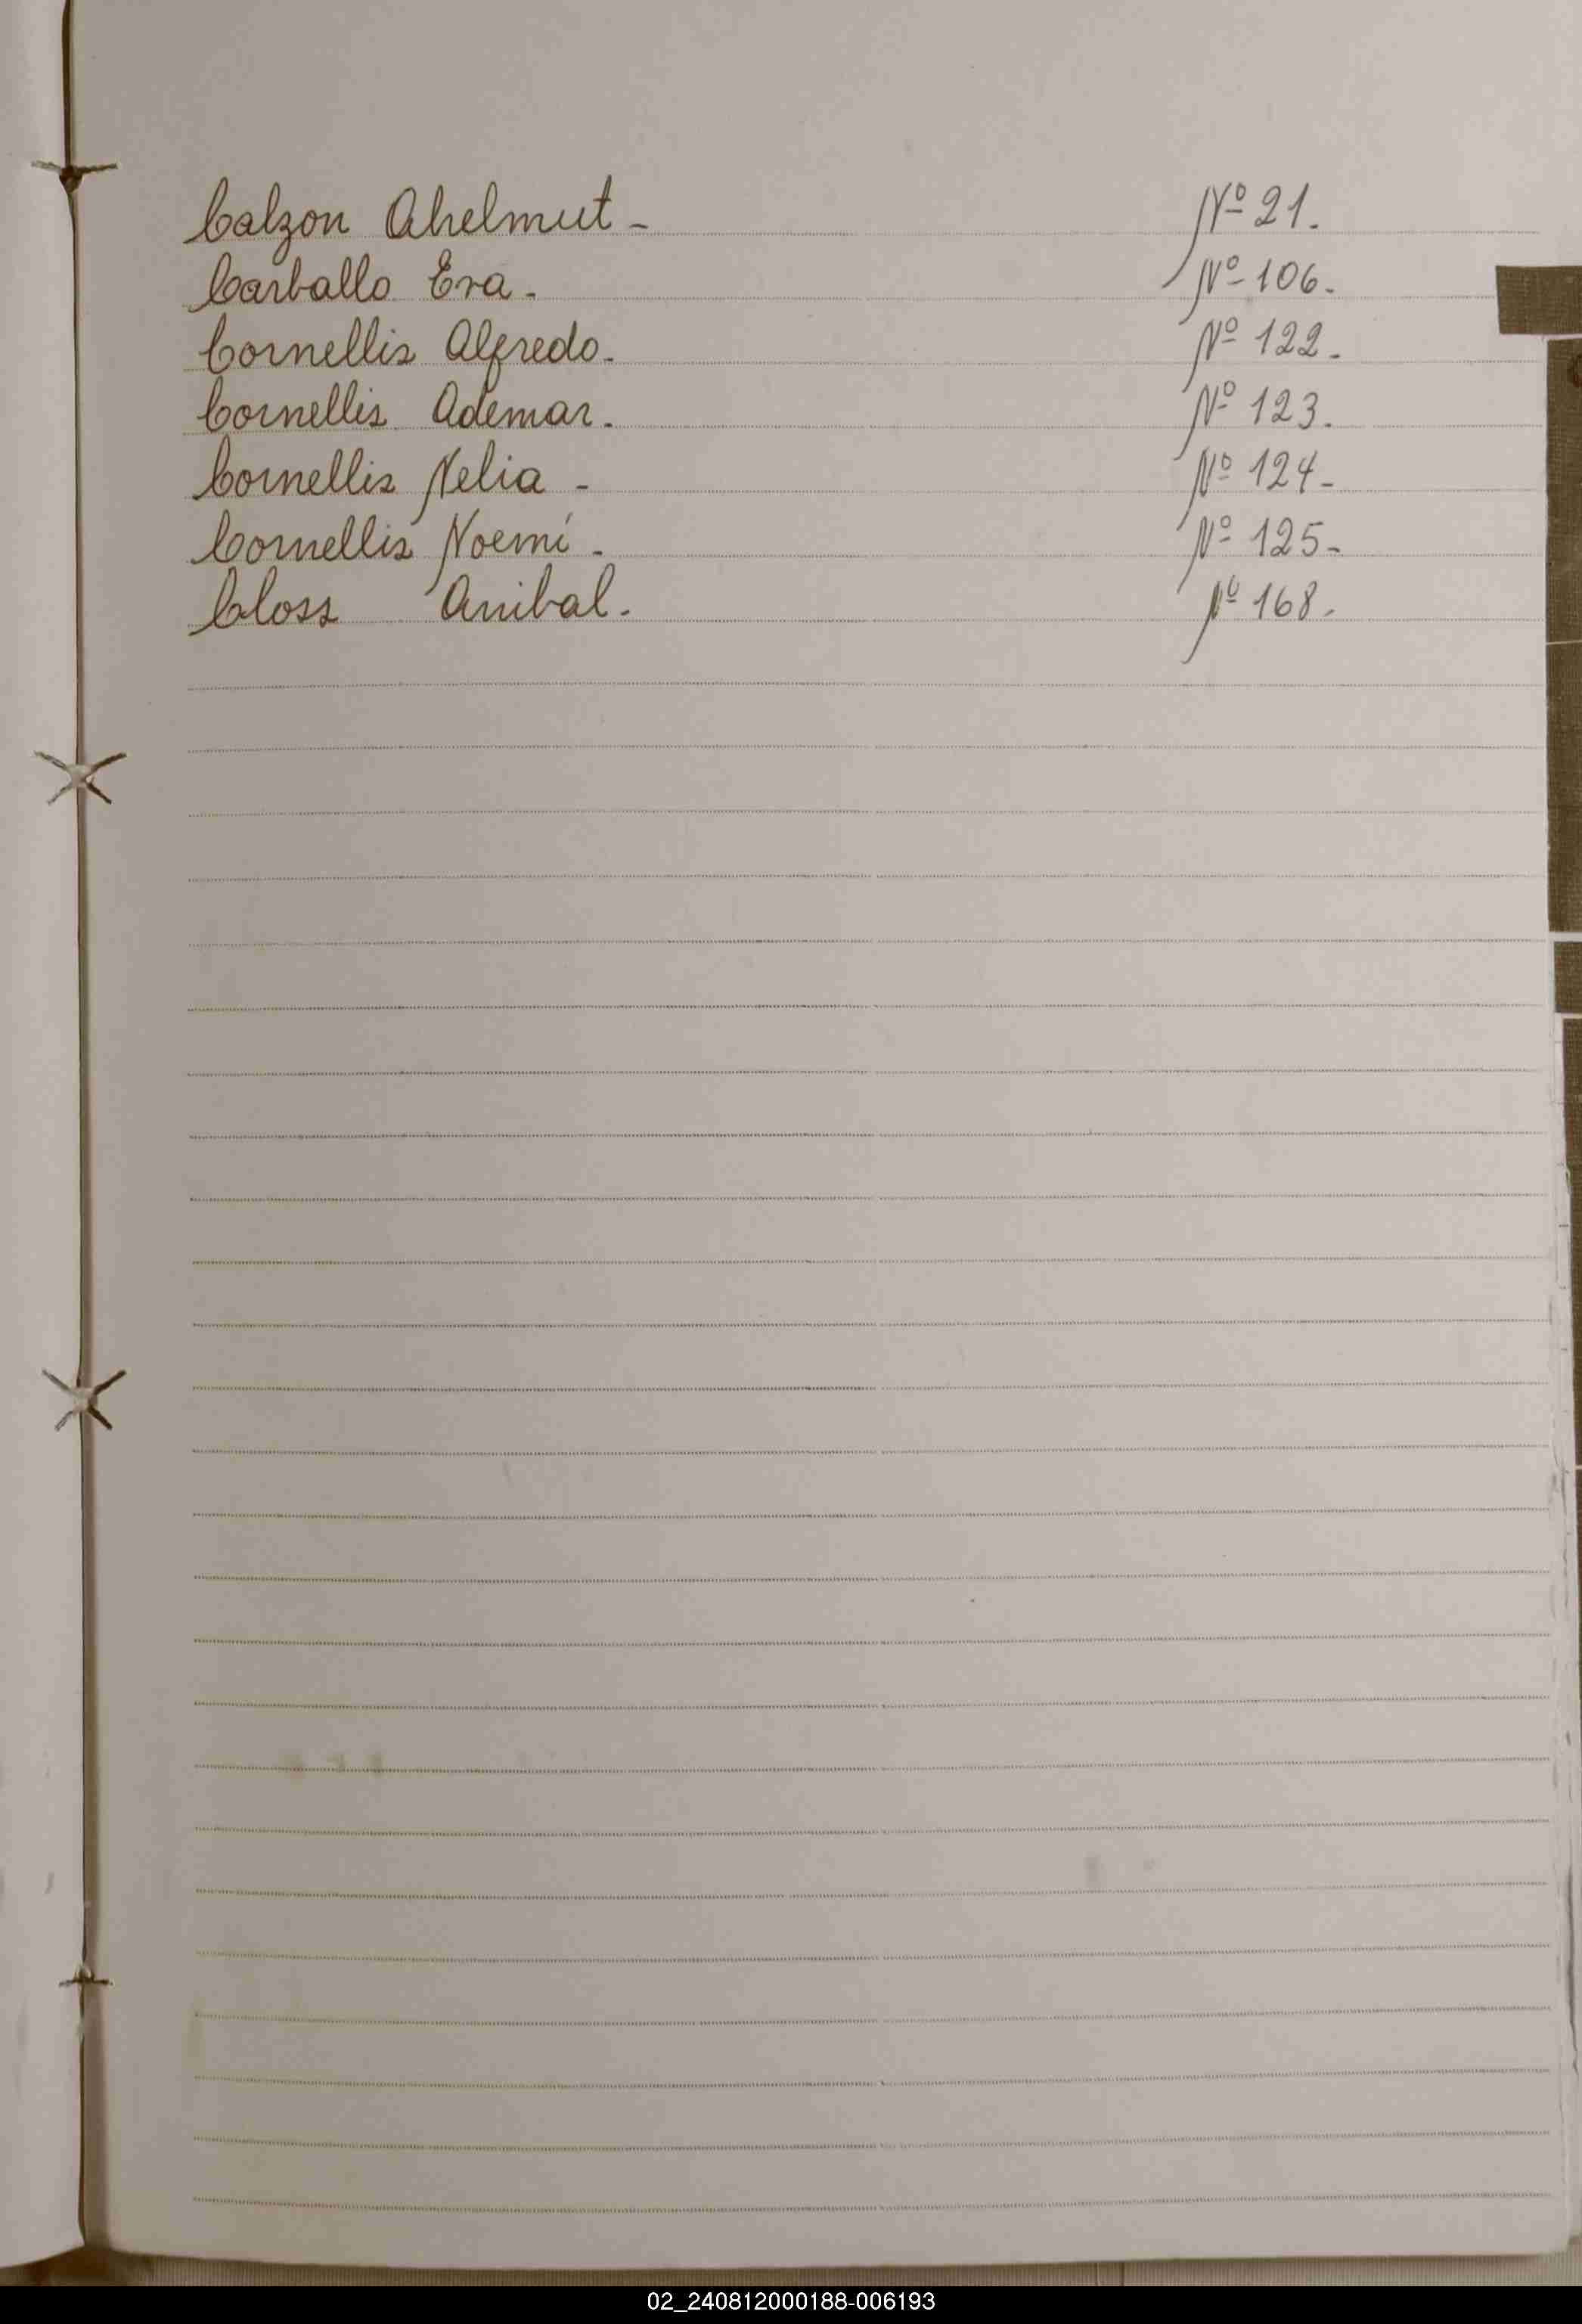 Calzon Ahelmut - Nº 21.
Carballo Eva - Nº 106.
Cornellis Alfredo. Nº 122.
Cornellis Ademar. Nº 123.
Cornellis Nelia - Nº 124-
Cornellis Noemí - Nº 125-
Closs Anibal. Nº 168.
02_240812000188-006193